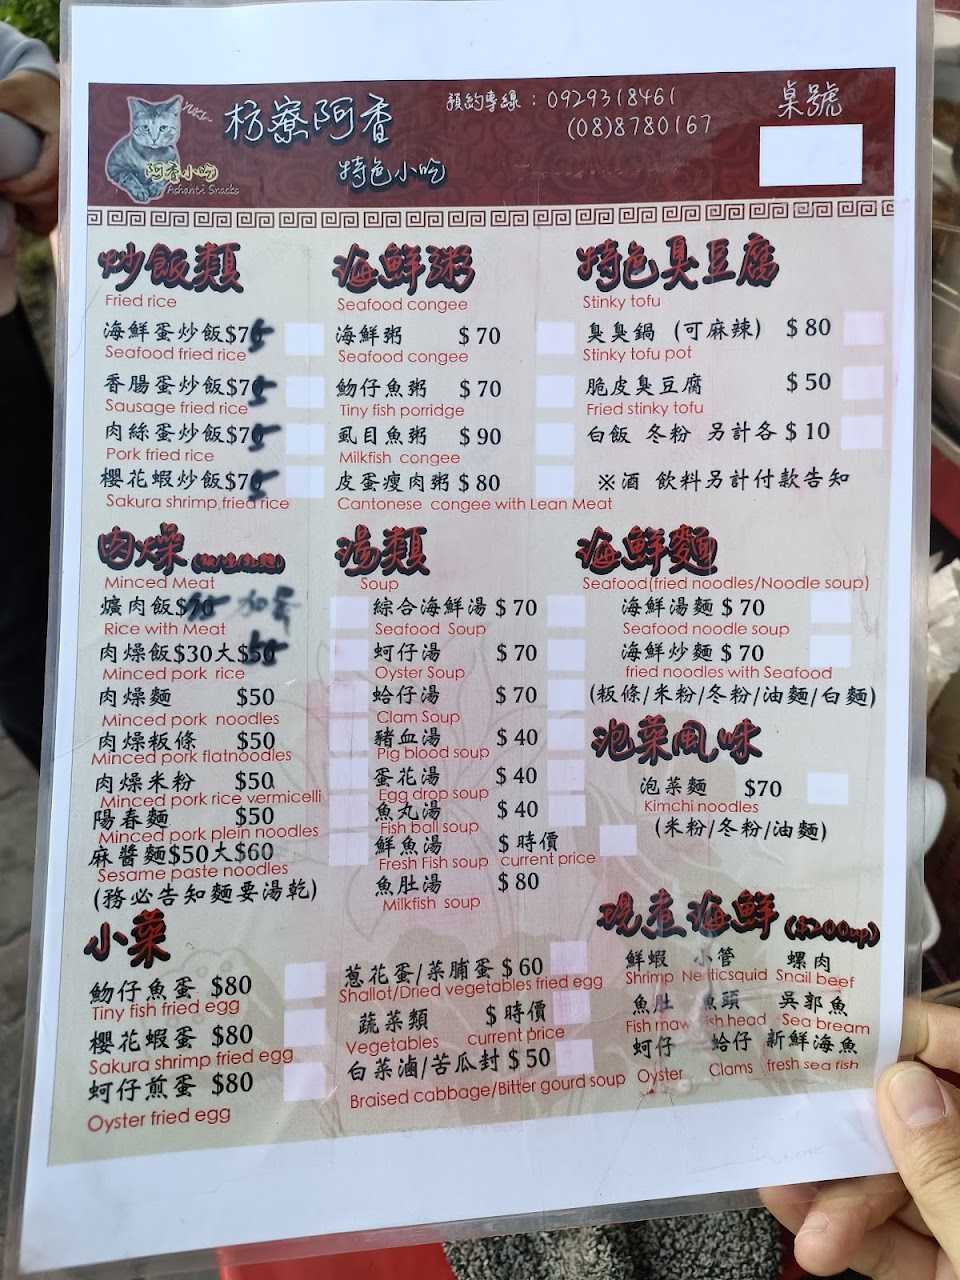 YUKI~
枋寮阿香
特色小吃
阿香小吃
Ashanti Snacks
預約專線：0929318461
(08)8780167
桌號
炒飯類
Fried rice
海鮮蛋炒飯$75
Seafood fried rice
香腸蛋炒飯$75
Sausage fried rice
肉絲蛋炒飯$75
Pork fried rice
櫻花蝦炒飯$75
Sakura shrimp fried rice
海鮮粥
Seafood congee
海鮮粥 $70
Seafood congee
魩仔魚粥 $70
Tiny fish porridge
虱目魚粥 $90
Milkfish congee
皮蛋瘦肉粥 $80
Cantonese congee with Lean Meat
特色臭豆腐
Stinky tofu
臭臭鍋 (可麻辣) $80
Stinky tofu pot
脆皮臭豆腐 $50
Fried stinky tofu
白飯 冬粉 另計各 $10
※酒 飲料另計付款告知
肉燥
Minced Meat
爌肉飯$70
Rice with Meat
肉燥飯$30大$50
Minced pork rice
肉燥麵 $50
Minced pork noodles
肉燥粄條 $50
Minced pork flatnoodles
肉燥米粉 $50
Minced pork rice vermicelli
陽春麵 $50
Minced pork plein noodles
麻醬麵$50大$60
Sesame paste noodles
(務必告知麵要湯乾)
湯類
Soup
綜合海鮮湯 $70
Seafood Soup
蚵仔湯 $70
Oyster Soup
蛤仔湯 $70
Clam Soup
豬血湯 $40
Pig blood soup
蛋花湯 $40
Egg drop soup
魚丸湯 $40
Fish ball soup
鮮魚湯 $時價
Fresh Fish soup current price
魚肚湯 $80
Milkfish soup
海鮮麵
Seafood(fried noodles/Noodle soup)
海鮮湯麵 $70
Seafood noodle soup
海鮮炒麵 $70
fried noodles with Seafood
(粄條/米粉/冬粉/油麵/白麵)
泡菜風味
泡菜麵 $70
Kimchi noodles
(米粉/冬粉/油麵)
小菜
魩仔魚蛋 $80
Tiny fish fried egg
櫻花蝦蛋 $80
Sakura shrimp fried egg
蚵仔煎蛋 $80
Oyster fried egg
蔥花蛋/菜脯蛋 $60
Shallot/Dried vegetables fried egg
蔬菜類 $時價
Vegetables current price
白菜滷/苦瓜封 $50
Braised cabbage/Bitter gourd soup
現煮海鮮 ($200up)
鮮蝦 小管 螺肉
Shrimp Neriticsquid Snail beef
魚肚 魚頭 吳郭魚
Fish maw fish head Sea bream
蚵仔 蛤仔 新鮮海魚
Oyster Clams fresh sea fish